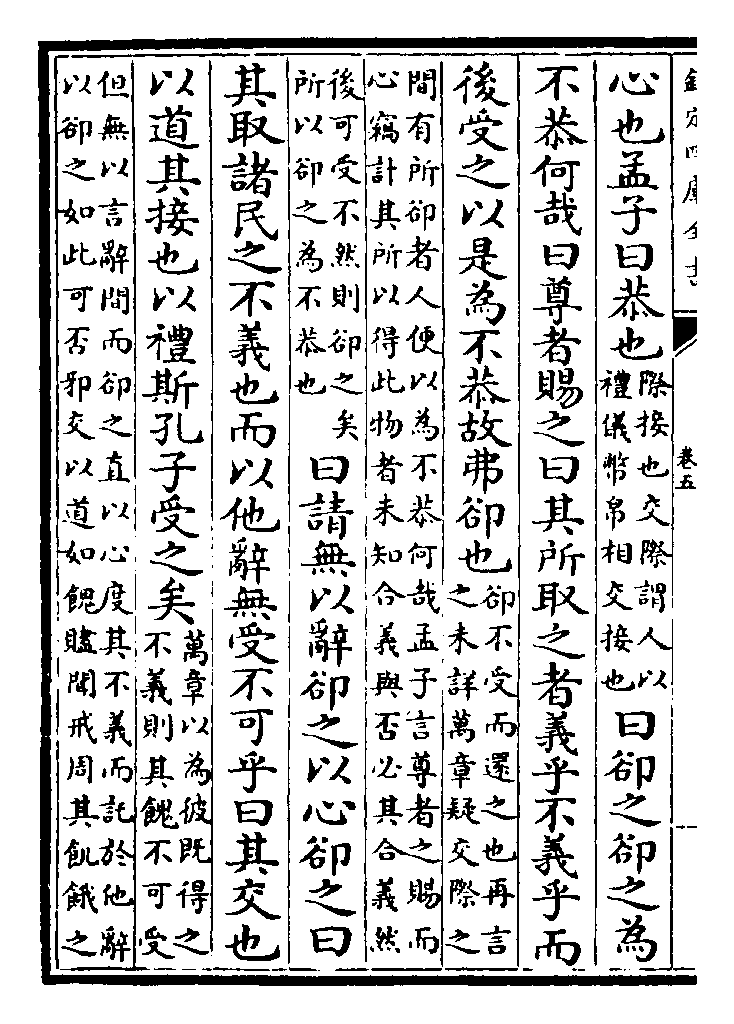 欽定四庫全書
卷五
心也孟子曰恭也
際接也交際謂人以
禮儀幣帛相交接也
曰卻之卻之為
不恭何哉曰尊者賜之曰其所取之者義乎不義乎而
後受之以是為不恭故弗卻也
卻不受而還之也再言
之未詳萬章疑交際之
間有所卻者人便以為不恭何哉孟子言尊者之賜而
心竊計其所以得此物者未知合義與否必其合義然
後可受不然則卻之矣
所以卻之為不恭也
曰請無以辭卻之以心卻之曰
其取諸民之不義也而以他辭無受不可乎曰其交也
以道其接也以禮斯孔子受之矣
萬章以為彼既得之
不義則其餽不可受
但無以言辭間而卻之直以心度其不義而託於他辭
以卻之如此可否邪交以道如餽贐聞戒周其飢餓之